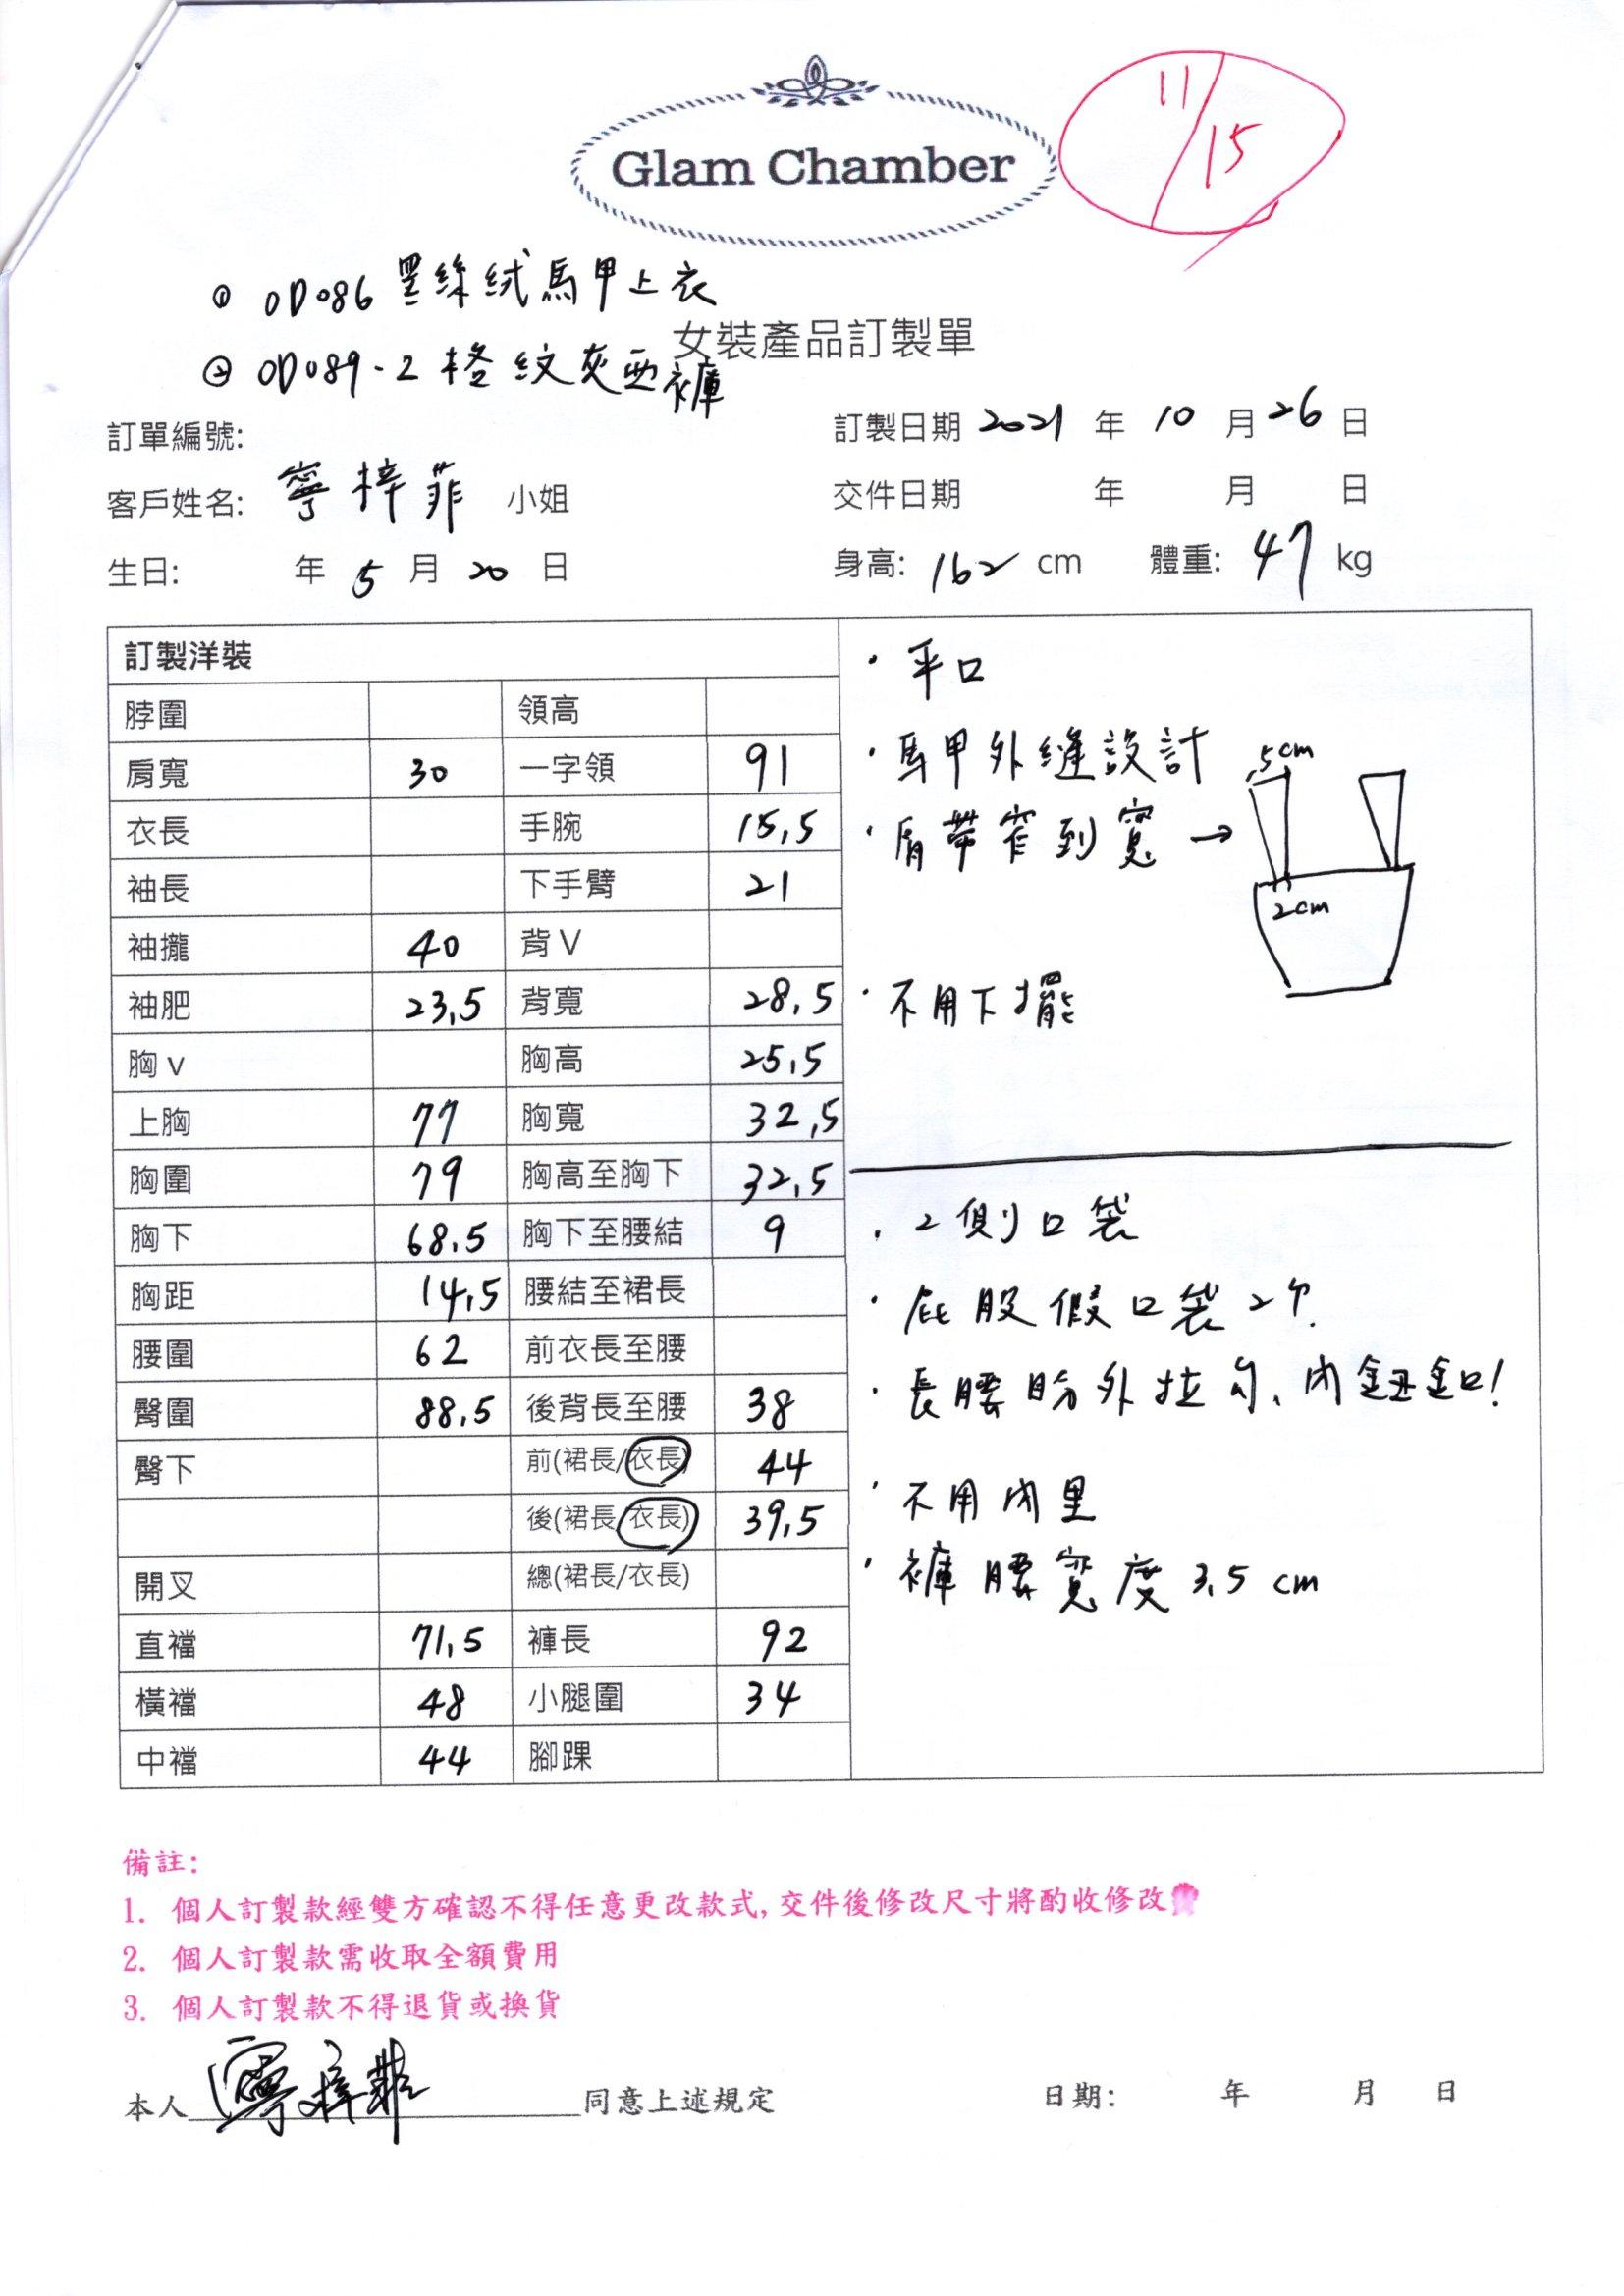 Glam Chamber
11/15
① OD086 黑絲絨馬甲上衣
女裝產品訂製單
② OD089-2 格紋灰西褲
訂單編號:
訂製日期 2021 年 10 月 26 日
客戶姓名: 寧梓菲 小姐
交件日期 年 月 日
生日: 年 5 月 20 日
身高: 162 cm 體重: 47 kg
訂製洋裝
脖圍 領高
肩寬 30 一字領 91
衣長 手腕 15,5
袖長 下手臂 21
袖攏 40 背V
袖肥 23,5 背寬 28,5
胸v 胸高 25,5
上胸 77 胸寬 32,5
胸圍 79 胸高至胸下 32,5
胸下 68,5 胸下至腰結 9
胸距 14,5 腰結至裙長
腰圍 62 前衣長至腰
臀圍 88,5 後背長至腰 38
臀下 前(裙長/衣長) 44
後(裙長/衣長) 39,5
開叉 總(裙長/衣長)
直襠 71,5 褲長 92
橫襠 48 小腿圍 34
中襠 44 腳踝
· 平口
· 馬甲外縫設計
· 肩帶窄到寬 →
5cm
2cm
· 不用下擺
· 2側口袋
· 屁股假口袋2个
· 長腰 外拉勾、內鈕釦!
· 不用內里
· 褲腰寬度 3,5 cm
備註:
1. 個人訂製款經雙方確認不得任意更改款式, 交件後修改尺寸將酌收修改
2. 個人訂製款需收取全額費用
3. 個人訂製款不得退貨或換貨
本人 寧梓菲 同意上述規定
日期: 年 月 日